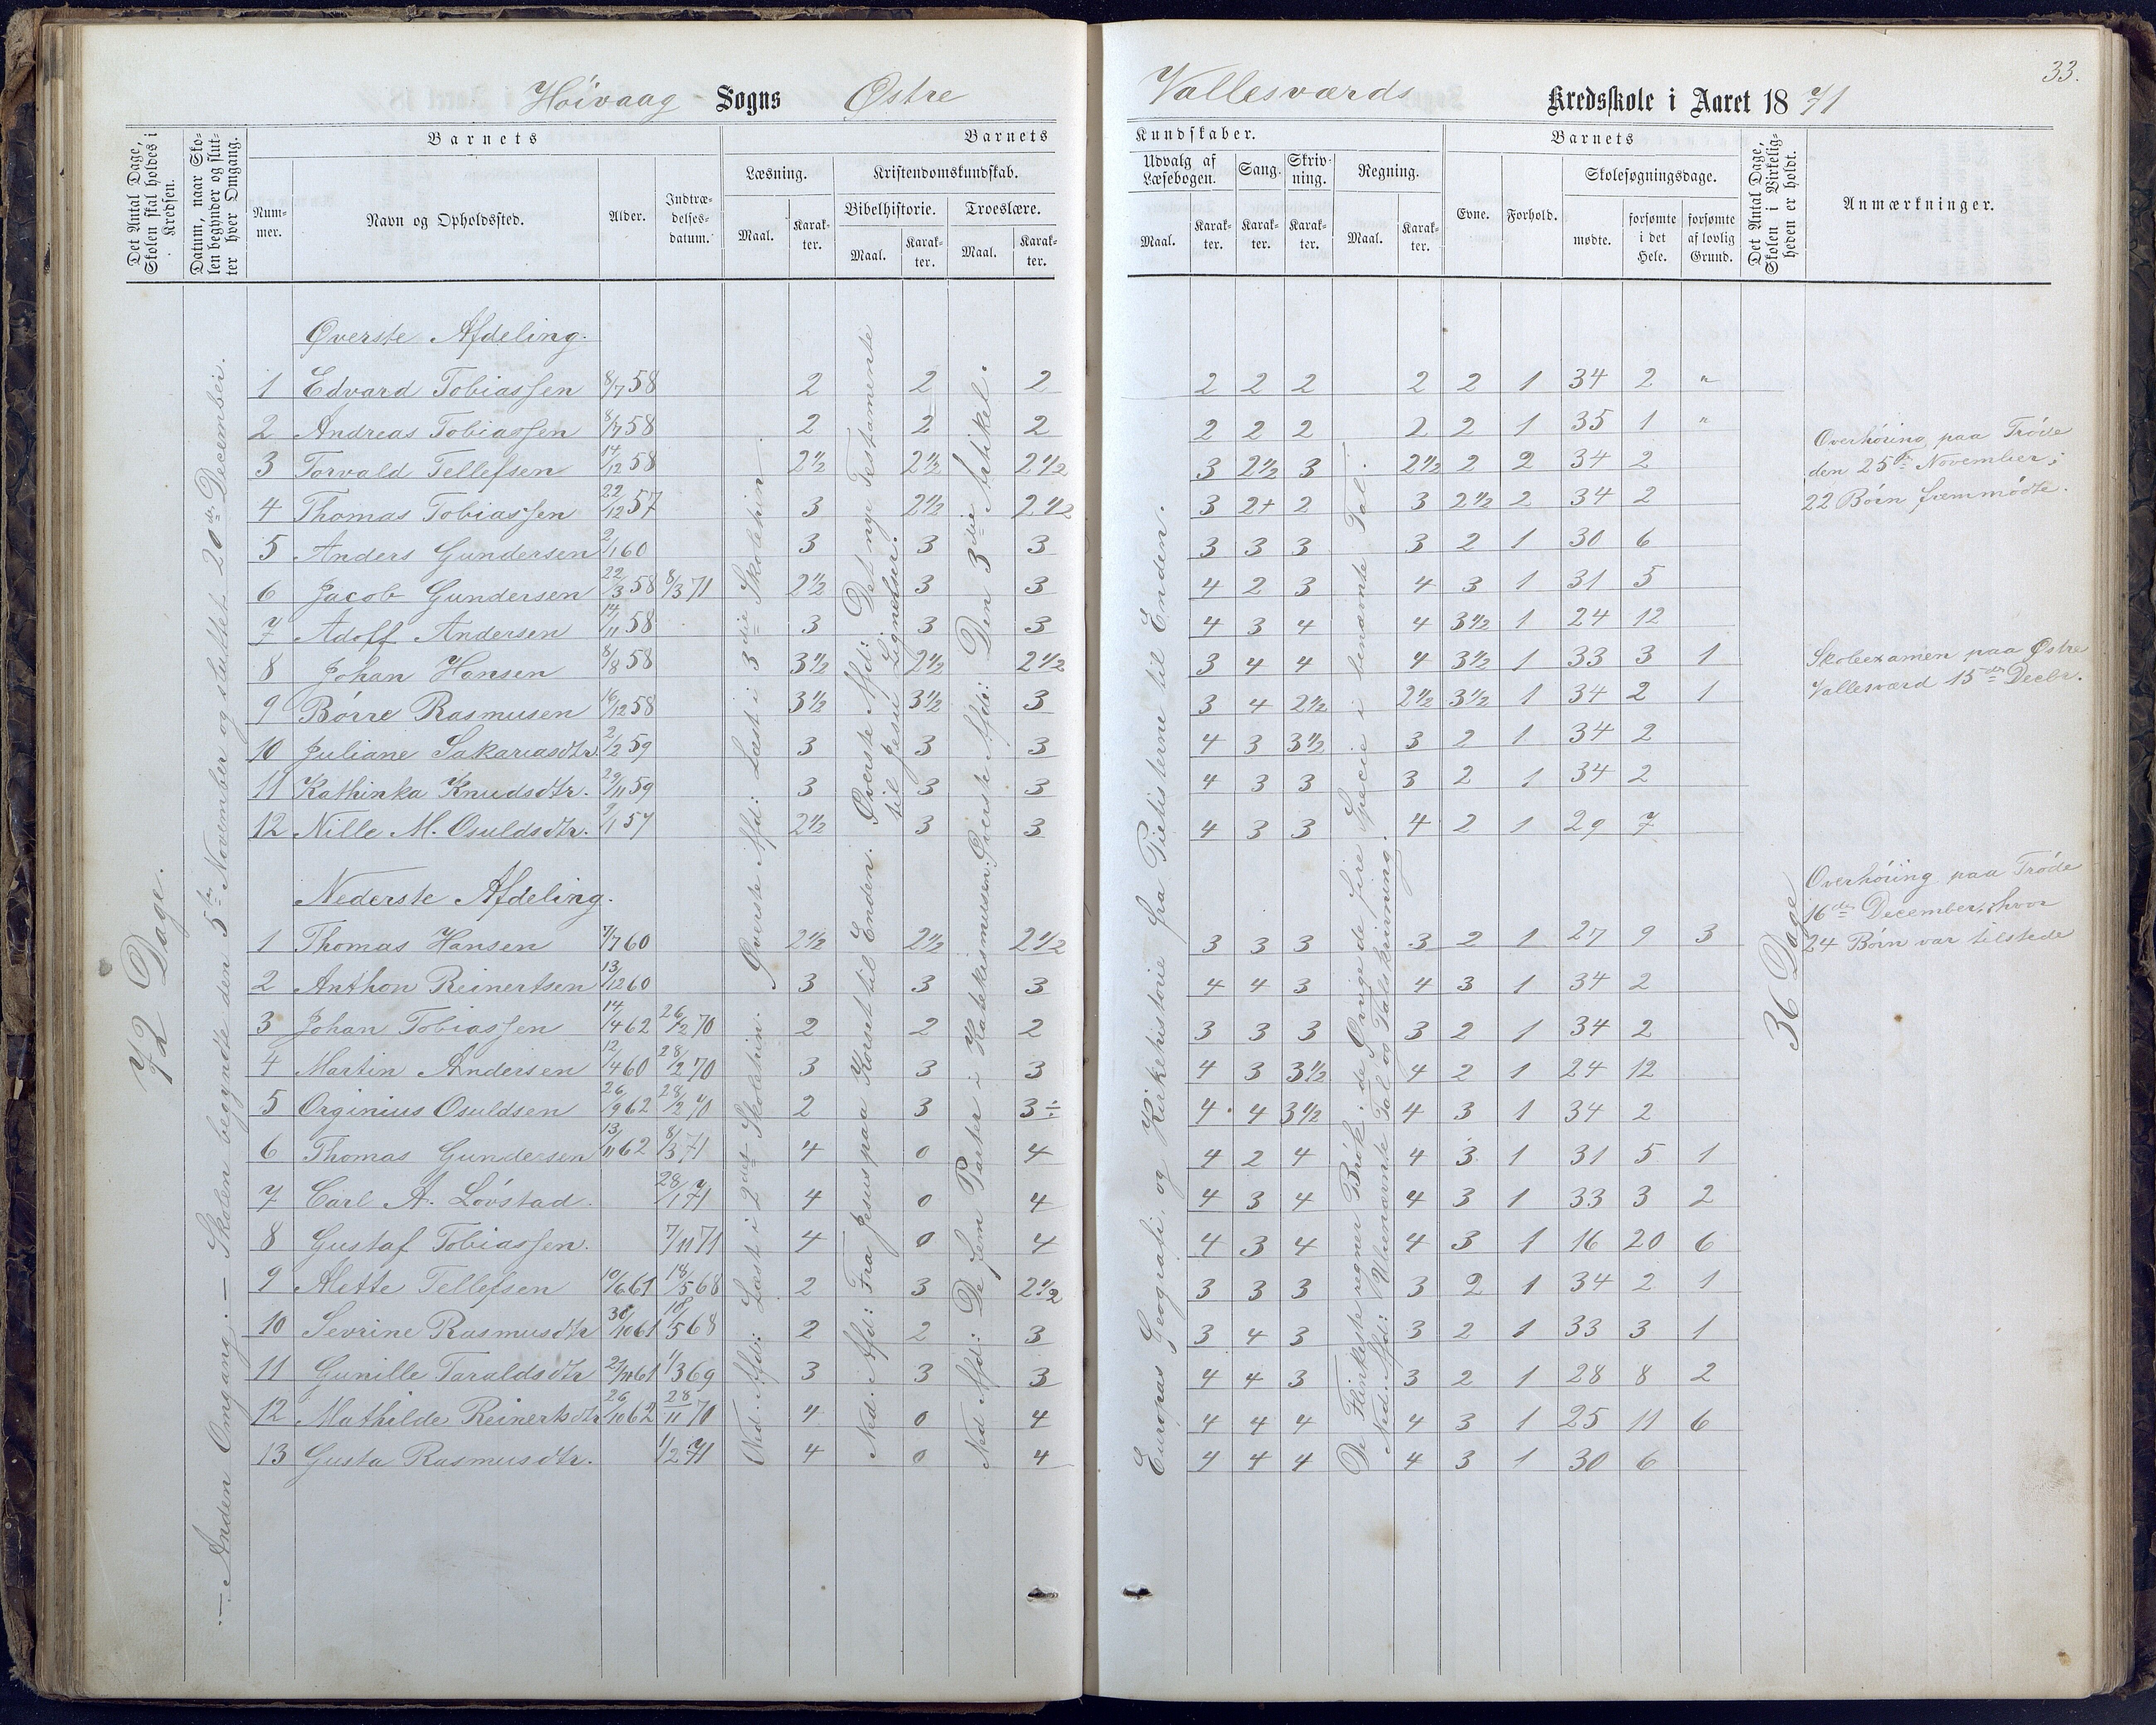 33.
Høivaag Sogns Østre Vallesværds Kredsskole i Aaret 1871
Det Antal Dage, Skolen skal holdes i Kredsen.
Datum, naar Skolen begynder og slutter hver Omgang.
Barnets
Nummer.
Navn og Opholdssted.
Alder.
Indtrædelsesdatum.
Barnets Kundskaber.
Læsning.
Maal. Karakter.
Kristendomskundskab.
Bibelhistorie.
Maal. Karakter.
Troeslære.
Maal. Karakter.
Udvalg af Læsebogen.
Maal. Karakter.
Sang.
Karakter.
Skrivning.
Karakter.
Regning.
Maal. Karakter.
Barnets
Evne. Forhold.
Skolesøgningsdage.
mødte. forsømte i det Hele. forsømte af lovlig Grund.
Det Antal Dage, Skolen i Virkeligheden er holdt.
Anmærkninger.
72 Dage.
— Anden Omgang: — Skolen begyndte den 5te November og sluttet 20de December.
Øverste Afdeling.
1 Edvard Tobiassen 8/7 58 2 2 2 2 2 2 2 2 1 34 2 "
2 Andreas Tobiassen 8/7 58 2 2 2 2 2 2 2 2 1 35 1 "
3 Torvald Tellefsen 14/12 58 2 1/2 2 1/2 2 1/2 3 2 1/2 3 2 1/2 2 2 34 2
4 Thomas Tobiassen 22/12 57 3 2 1/2 2 1/2 3 2+ 2 3 2 1/2 2 34 2
5 Anders Gundersen 2/1 60 3 3 3 3 3 3 3 2 1 30 6
6 Jacob Gundersen 22/3 58 8/3 71 2 1/2 3 3 4 2 3 4 3 1 31 5
7 Adolf Andersen 14/11 58 3 3 3 4 3 4 4 3 1/2 1 24 12
8 Johan Hansen 8/8 58 3 1/2 2 1/2 2 1/2 3 4 4 4 3 1/2 1 33 3 1
9 Børre Rasmusen 16/12 58 3 1/2 3 1/2 3 3 4 2 1/2 2 1/2 3 1/2 1 34 2 1
10 Juliane Sakariasdtr. 2/2 59 3 3 3 4 3 3 1/2 3 2 1 34 2
11 Kathinka Knudsdtr. 29/11 59 3 3 3 4 3 3 3 2 1 34 2
12 Nille M. Osuldsdtr. 9/1 57 2 1/2 3 3 4 3 3 4 2 1 29 7
Nederste Afdeling.
1 Thomas Hansen 7/7 60 2 1/2 2 1/2 2 1/2 3 3 3 3 2 1 27 9 3
2 Anthon Reinertsen 13/12 60 3 3 3 4 4 3 4 3 1 34 2
3 Johan Tobiassen 14/4 62 26/2 70 2 2 2 3 3 3 3 2 1 34 2
4 Martin Andersen 12/4 60 28/2 70 3 3 3 4 3 3 1/2 4 2 1 24 12
5 Orginius Osuldsen 26/9 62 28/2 70 2 3 3÷ 4 4 3 1/2 4 3 1 34 2
6 Thomas Gundersen 13/11 62 8/3 71 4 0 4 4 2 4 4 3 1 31 5 1
7 Carl A. Løvstad. 28/1 71 4 0 4 4 3 4 4 3 1 33 3 2
8 Gustaf Tobiassen. 7/11 71 4 0 4 4 3 4 4 3 1 16 20 6
9 Mette Tellefsen 10/6 61 18/5 68 2 3 2 1/2 3 3 3 3 2 1 34 2 1
10 Sevrine Rasmusdtr 30/10 61 18/5 68 2 2 3 3 4 3 3 2 1 33 3 1
11 Gunille Taraldsdtr 21/11 61 1/3 69 3 3 3 4 4 3 3 2 1 28 8 2
12 Mathilde Reinertsdtr 26/10 62 28/11 70 4 0 4 4 4 4 4 3 1 25 11 6
13 Gusta Rasmusdtr. 1/2 71 4 0 4 4 4 4 4 3 1 30 6
Øverste Afd: Læst i 3die Skoletrin.
Ned. Afd: Læst i 2det Skoletrin.
Øverste Afd: Det nye Testamente til Jesu Lignelser.
Ned. Afd: Fra Jesus paa Korset til Enden.
Øverste Afd: Den 3die Artikel.
Ned Afd: De fem Parter i Katekismussen.
Europas Geografi, og Kirkehistorie fra Pietisterne til Enden.
De Flinkeste regner Brøk; de Øvrige de fire Specie i benævnte Tal.
Ned. Afd: Ubenævnte Tal og Talskrivning.
36 Dage
Overhøring paa Trøde
den 25de November;
22 Børn fremmødte.
Skoleexamen paa Østre
Vallesværd 15de Decbr.
Overhøring paa Trøde
16de December, hvor
24 Børn var tilstede